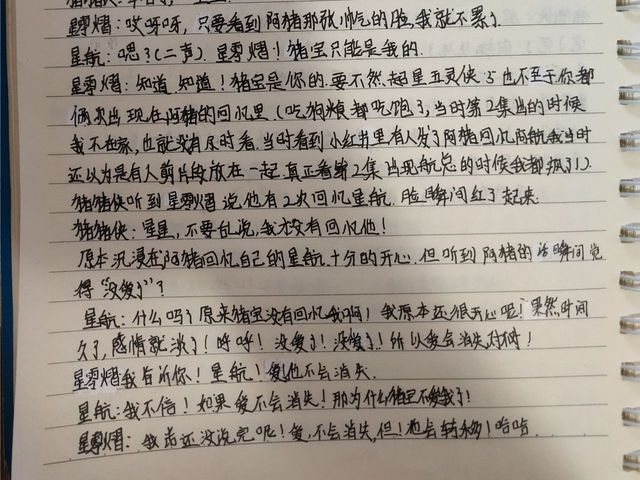 星零熠:哎呀呀,只要看到阿猪那张帅气的脸,我就不累了.
星航:嗯?(二声).星零熠!猪宝只能是我的.
星零熠:知道,知道!猪宝是你的.要不然超星五灵侠5也不至于你都
俩次出现在阿猪的回忆里(吃狗粮都吃饱了,当时第2集出的时候
我不在家,也就没有及时看.当时看到小红书里有人发了阿猪回忆阿航,我当时
还以为是有人剪片段放在一起.真正看第2集出现航总的时候我都疯了!)
猪猪侠听到星零熠说他有2次回忆星航.脸瞬间红了起来.
猪猪侠:星星,不要乱说,我才没有回忆他!
原本沉浸在阿猪回忆自己的星航.十分的开心.但听到阿猪的话瞬间觉
得"没爱了"?
星航:什么吗?原来猪宝没有回忆我啊!我原本还很开心呢!果然时间
久了,感情就淡了!哼哼!没爱了!没爱了!所以爱会消失,对吗!
星零熠:我告诉你!星航!爱也不会消失.
星航:我不信!如果爱不会消失!那为什么猪宝不爱我了!
星零熠:我话还没说完呢!爱,不会消失,但!也会转移!哈哈.